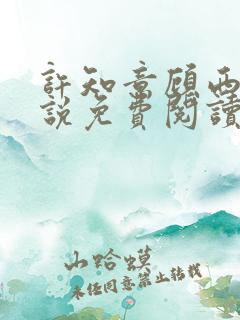 許知意顧西
說免費閱讀
山蛤蟆
未經同意禁止转载